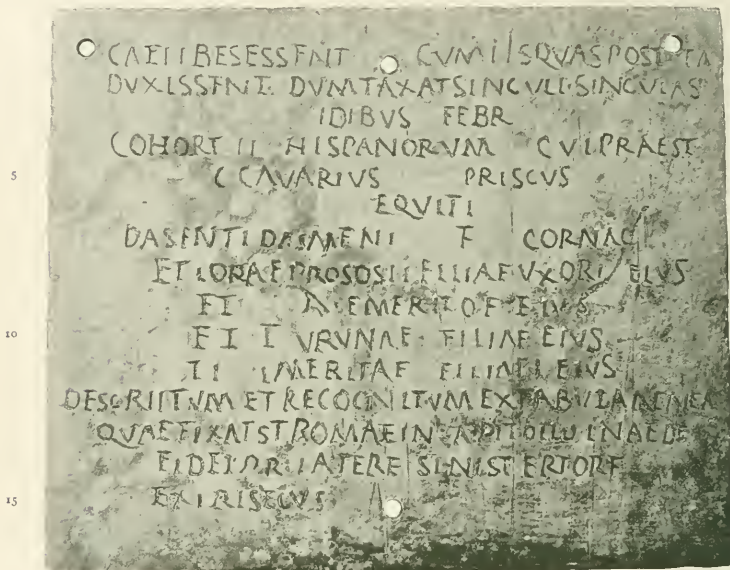 CAELIBESESSENT CVMIISQVASPOSTEA
DVXISSENT DVMTAXATSINGVLI·SINGVLAS
IDIBVS FEBR
COHORT II HISPANORVM CVIPRAEST
5 C CAVARIVS PRISCVS
EQVITI
DASENTI DASMENI F CORNAC
ET LORAE PROSOSII FILIAE VXORI EIVS
ET EMERITO F EIVS
10 ET TVRVNAE FILIAE EIVS
ET EMERITAE FILIAE EIVS
DESCRIPTVM ET RECOGNITVM EX TABVLA AENEA
QVAE FIXA EST ROMAE IN CAPITOLIO IN AEDE
FIDEI P·R LATERE SINISTERIORE
15 EXTRISECVS